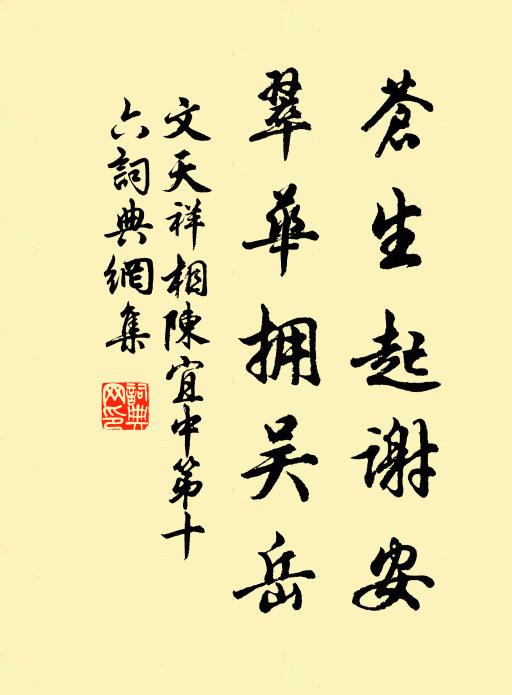 蒼生起谢安
翠華拥吴岳
文天祥相陳宜中第十
六詞典網集
詞典
网印